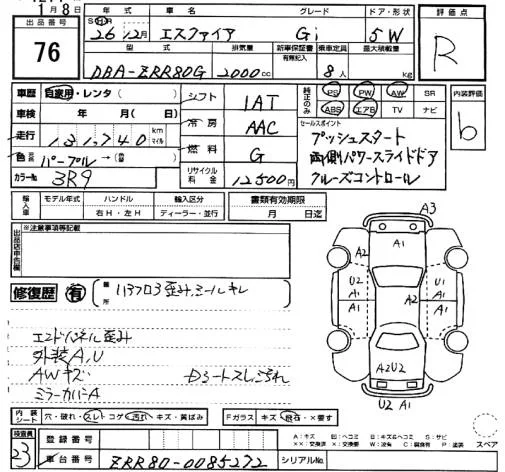 1月8日
出品番号
76
年式
26年12月
車名
エスクァイア
グレード
Gi
ドア・形状
5W
評価点
R
型式
DBA-ZRR80G
排気量
2000cc
新車保証書
有無記入
乗車定員
8人
最大積載量
kg
車歴
自家用・レンタ( )
車検 年 月( 日)
走行
131,740
km
マイル
色 パープル→( )
カラーNo
3R9
シフト
1AT
冷房
AAC
燃料
G
リサイクル料金
12500円
純正のみ
PS PW AW SR
ABS エアB TV ナビ
セールスポイント
プッシュスタート
両側パワースライドドア
クルーズコントロール
内装評価
b
輸入車
モデル年式
ハンドル
右H・左H
輸入区分
ディーラー・並行
書類有効期限
月 日迄
出品店申告欄
※注意事項等記載
修復歴 有
箇所
エンドパネル歪み
外装A,U
AWキズ
ミラーカバーA
シートスレ汚れ
A3
A1
A2
U2
A1
A1
A2
U1
A1
A1
A2U2
U2 A1
内装
シート
穴・破れ・スレ・コゲ・汚れ・キズ・黄ばみ
Fガラス キズ・飛石・×要す
検査員
23
登録番号
車台番号
ZRR80-0085272
シリアルNo.
A:キズ
スペア